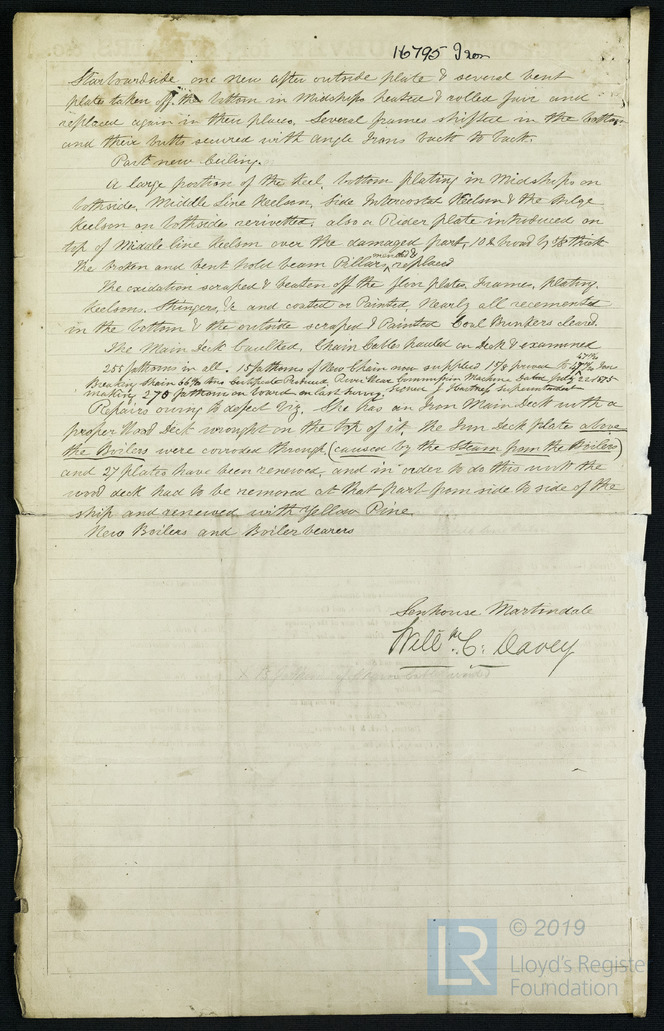 16795 Iron
Starboardside one new after outside plate & several bent
plates taken off the bottom in Midships heated & rolled fair and
replaced again in their places, Several frames shifted in the bottom
and their butts secured with angle Irons back to back.
Part new Ceiling.
A large portion of the Keel, bottom plating in Midships on
bothside, Middle Line Keelson, Side Intercostal Keelson & the bilge
Keelson on bothside rerivetted, also a Rider plate introduced on
top of Middle line Keelson over the damaged part, 10 broad by thick
The broken and bent hold beam Pillars mended & replaced
The oxidation scraped & beaten off the floor plates, Frames, plating
Keelsons, Stringers, &c and coated or Painted, Nearly all recemented
in the bottom & the outside scraped & Painted Coal Bunkers cleared.
The Main Deck Caulked, Chain Cables hauled on Deck & examined
255 fathoms in all. 15 fathoms of New Chain now supplied 1 5/8 proved to 47 Tons
Breaking Strain 66 Tons Certificate Produced River Wear Commission Machine dated July 22 1875
making 270 fathoms on board on last survey. Signed J. Hartness Superintendent
Repairs owing to defect Viz. She has an Iron Main Deck with a
proper Wood Deck wrought on the top of it, the Iron Deck plate above
the Boilers were corroded through (caused by the Steam from the Boilers)
and 27 plates have been renewed, and in order to do this work the
wood deck had to be removed at that part from side to side of the
ship and renewed with Yellow Pine.
New Boilers and Boiler bearers
Senhouse Martindale
Willm C. Davey
LR © 2019
Lloyd's Register
Foundation